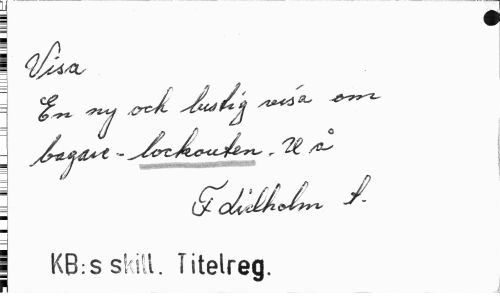 Visa
En ny och lustig visa om
bagare-lockouten. U å
F didholm t.
KB:s skill. Titelreg.